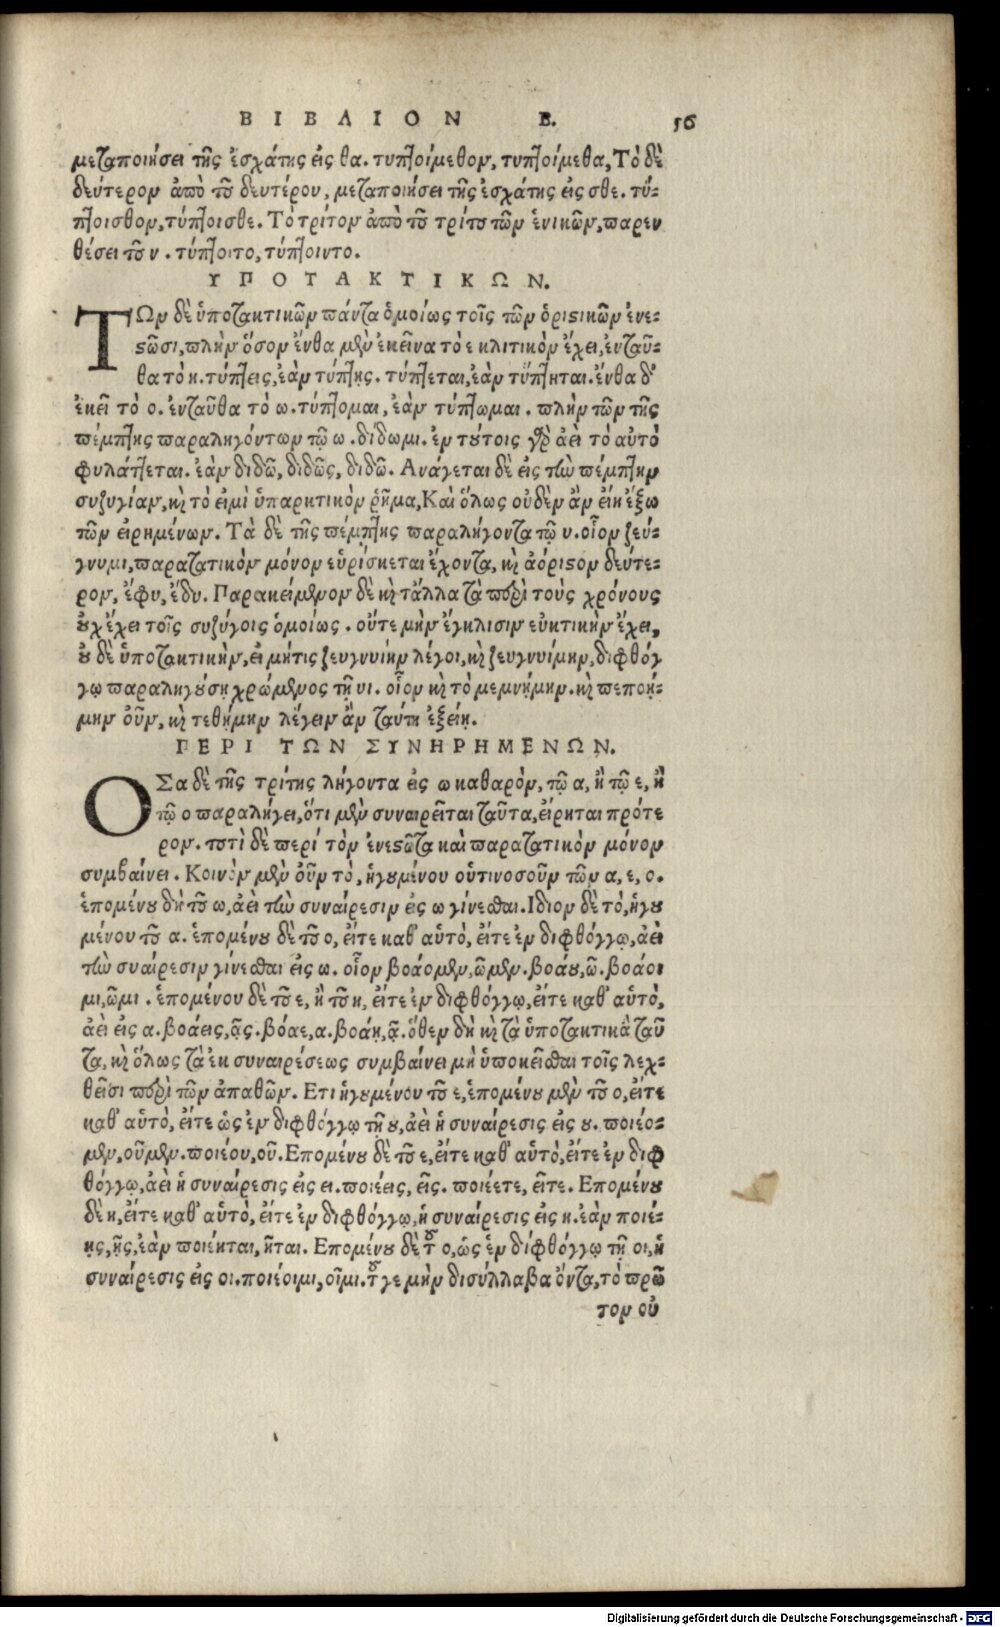 ΒΙΒΛΙΟΝ Β. 56
μεταποιήσει τῆς ἐσχάτης εἰς θα. τυπτοίμεθον, τυπτοίμεθα, Τὸ δὲ
δεύτερον ἀπὸ τοῦ δευτέρου, μεταποιήσει τῆς ἐσχάτης εἰς σθε. τύ-
πτοισθον, τύπτοισθε. Τὸ τρίτον ἀπὸ τοῦ τρίτου τῶν ἑνικῶν, παρεν
θέσει τοῦ ν. τύπτοιτο, τύπτοιντο.
ΥΠΟΤΑΚΤΙΚΩΝ.
ΤΩν δὲ ὑποτακτικῶν πάντα ὁμοίως τοῖς τῶν ὁριστικῶν ἐνε-
στῶσι, πλὴν ὅσον ἔνθα μὲν ἐκεῖνα τὸ ε κλιτικὸν ἔχει, ἐνταῦ-
θα τὸ η. τύπτεις, ἐὰν τύπτῃς. τύπτεται, ἐὰν τύπτηται. ἔνθα δ'
ἐκεῖ τὸ ο. ἐνταῦθα τὸ ω. τύπτομαι, ἐὰν τύπτωμαι. πλὴν τῶν τῆς
πέμπτης παραληγόντων τῷ ω. δίδωμι. ἐν τούτοις γὰρ ἀεὶ τὸ αὐτὸ
φυλάττεται. ἐὰν διδῶ, διδῷς, διδῷ. Ανάγεται δὲ εἰς τὴν πέμπτην
συζυγίαν, καὶ τὸ εἰμὶ ὑπαρκτικὸν ῥῆμα, Καὶ ὅλως οὐδὲν ἂν εἴη ἔξω
τῶν εἰρημένων. Τὰ δὲ τῆς πέμπτης παραλήγοντα τῷ υ. οἷον ζεύ-
γνυμι, παρατατικὸν μόνον εὑρίσκεται ἔχοντα, καὶ ἀόριστον δεύτε-
ρον, ἔφυ, ἔδυ. Παρακείμενον δὲ καὶ τἄλλα τὰ περὶ τοὺς χρόνους
οὐχ ἔχει τοῖς συζύγοις ὁμοίως. οὔτε μὴν ἔγκλισιν εὐκτικὴν ἔχει,
οὐ δὲ ὑποτακτικὴν, εἰ μήτις ζευγνυίην λέγοι, καὶ ζευγνυίμην, διφθόγ
γῳ παραληγούσῃ χρώμενος τῇ υι. οἷον καὶ τὸ μεμνῄμην. καὶ πεποιῄ-
μην οὖν, καὶ τεθῄμην λέγειν ἂν ταύτῃ ἐξείη.
ΠΕΡΙ ΤΩΝ ΣΥΝΗΡΗΜΕΝΩΝ.
ΟΣα δὲ τῆς τρίτης λήγοντα εἰς ω καθαρὸν, τῷ α, ἢ τῷ ε, ἢ
τῷ ο παραλήγει, ὅτι μὲν συναιρεῖται ταῦτα, εἴρηται πρότε
ρον. τουτὶ δὲ περὶ τὸν ἐνεστῶτα καὶ παρατατικὸν μόνον
συμβαίνει. Κοινὸν μὲν οὖν τὸ, ἡγουμένου οὑτινοσοῦν τῶν α, ε, ο.
ἑπομένου δὴ τοῦ ω, ἀεὶ τὴν συναίρεσιν ἐς ω γίνεσθαι. Ιδιον δὲ τὸ, ἡγου
μένου τοῦ α. ἑπομένου δὲ τοῦ ο, εἴτε καθ' αὑτὸ, εἴτε ἐν διφθόγγῳ, ἀεὶ
τὴν συαίρεσιν γίνεσθαι εἰς ω. οἷον βοάομεν, ῶμεν. βοάου, ῶ. βοάοι
μι, ῶμι. ἑπομένου δὲ τοῦ ε, ἢ τοῦ η, εἴτε ἐν διφθόγγῳ, εἴτε καθ' αὑτὸ,
ἀεὶ εἰς α. βοάεις, ᾷς. βόαε, α. βοάῃ, ᾷ. ὅθεν δὴ καὶ τὰ ὑποτακτικὰ ταῦ
τα, καὶ ὅλως τὰ ἐκ συναιρέσεως συμβαίνει μὴ ὑποκεῖσθαι τοῖς λεχ-
θεῖσι περὶ τῶν ἀπαθῶν. Ετι ἡγουμένου τοῦ ε, ἑπομένου μὲν τοῦ ο, εἴτε
καθ' αὑτὸ, εἴτε ὡς ἐν διφθόγγῳ τῇ ου, ἀεὶ ἡ συναίρεσις εἰς ου. ποιέο-
μεν, οῦμεν. ποιέου, οῦ. Επομένου δὲ τοῦ ε, εἴτε καθ' αὑτὸ, εἴτε ἐν διφ
θόγγῳ, ἀεὶ ἡ συναίρεσις εἰς ει. ποιέεις, εῖς. ποιέετε, εῖτε. Επομένου
δὲ η, εἴτε καθ' αὑτὸ, εἴτε ἐν διφθόγγῳ, ἡ συναίρεσις εἰς η. ἐὰν ποιέ-
ῃς, ῇς, ἐὰν ποιέηται, ῆται. Επομένου δὲ τοῦ ο, ὡς ἐν διφθόγγῳ τῇ οι, ἡ
συναίρεσις εἰς οι. ποιέοιμι, οῖμι. τοῦ γε μὴν δισύλλαβα ὄντα, τὸ πρῶ
τον οὐ
Digitalisierung gefördert durch die Deutsche Forschungsgemeinschaft - DFG